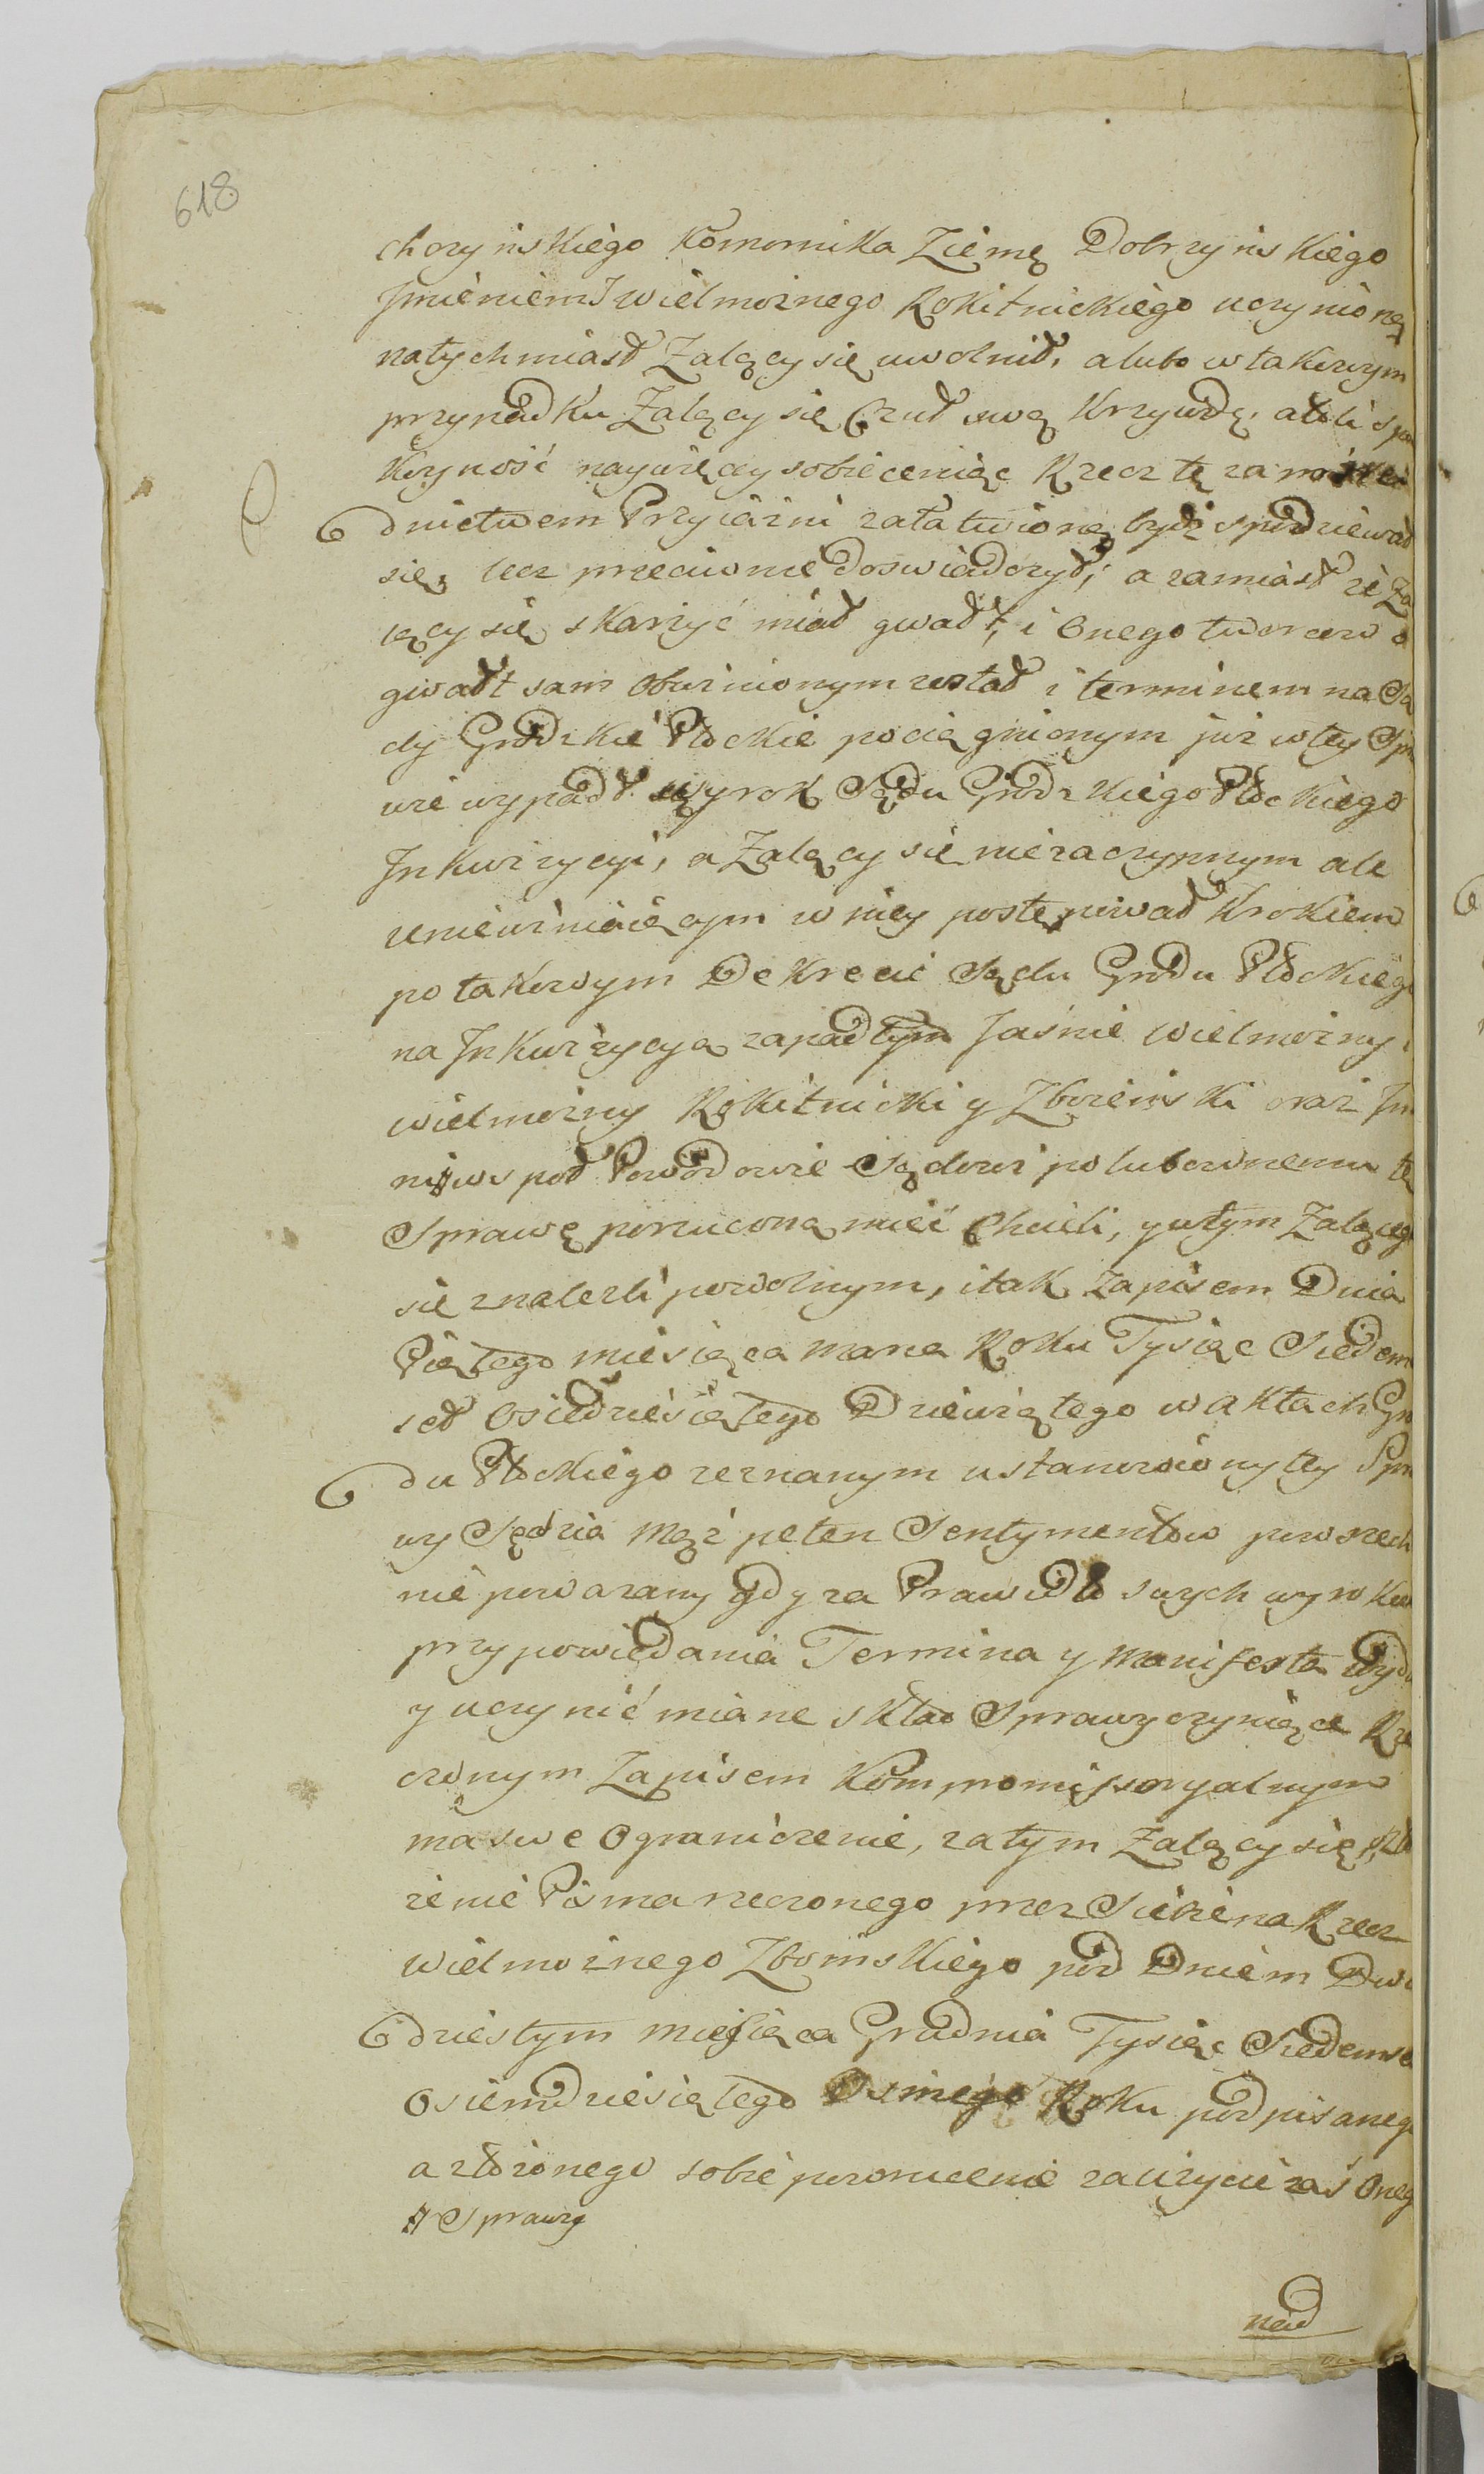 618
choryńskiego Komornika Ziemę Dobrzyńskiego
Jmieniem J Wielmoznego Rokitnickiego uczynioną
natychmiast Zalący się uwolnił, a lubo w takowym
przypadku Zalący się Czuł swą Krzywdę, atoli spo
koyność naywięcy sobie ceniąc Rzecz tę za
dnictwem Przyiaźni załatwioną bydź spodziewał
się, lecz przeciwnie doswiadczył, a zamiast że Za
lący się skarzyć miał gwałt, i Onego tworcew o
gwałt sam Obwinionym został i terminem na Są
dy Grodzkie Płockie pociągnionym już w tey Spra
wie wypadł wyrok Sądu Grodzkiego Płockiego
Jnkwizycyi, a Zalący się nie zaczynnym ale
uniewinniaiącym w niey postępował Krokiem
po takowym Dekrecie Sądu Grodu Płockiego
na Jnkwizycyą zapadłym Jaśnie Wielmożny i
Wielmożny Rokitnicki y Zboiński oraz Jm
niws pod Powodowie Sądowi polubownemu tę
Sprawę porzuconą mieć Chcieli, y w tym Zalącego
się znalezli powolnym, i tak Zapisem Dnia
Piątego miesiąca marca Roku Tysiąc Siedem
set Osiedziesiątego Dziewiątego w aktach Gro
du Płockiego zeznanym ustanowiony tey Spra
wy Sędzia Mąż pełen Sentymentow powszech
nie powazany gdy za Prawidło swych wyroków
przypowiedania Termina y Manifesta Wyda
y uczynić miane skład Sprawy czyniące Rze
czonym Zapisem Kompromissoryalnym
ma swe Ograniczenie, zatym Zalący się, zło
zenie Pisma rzeczonego przez Siebie na Rzecz
Wielmoznego Zboinskiego pod Dniem Dwu
dziestym miesiąca Grudnia Tysiąc Siedemset
Osiemdziesiątego Osmego Roku podpisanego
a złożonego sobie poronienie za użycie zaś Oneg
# Sprawy
nad